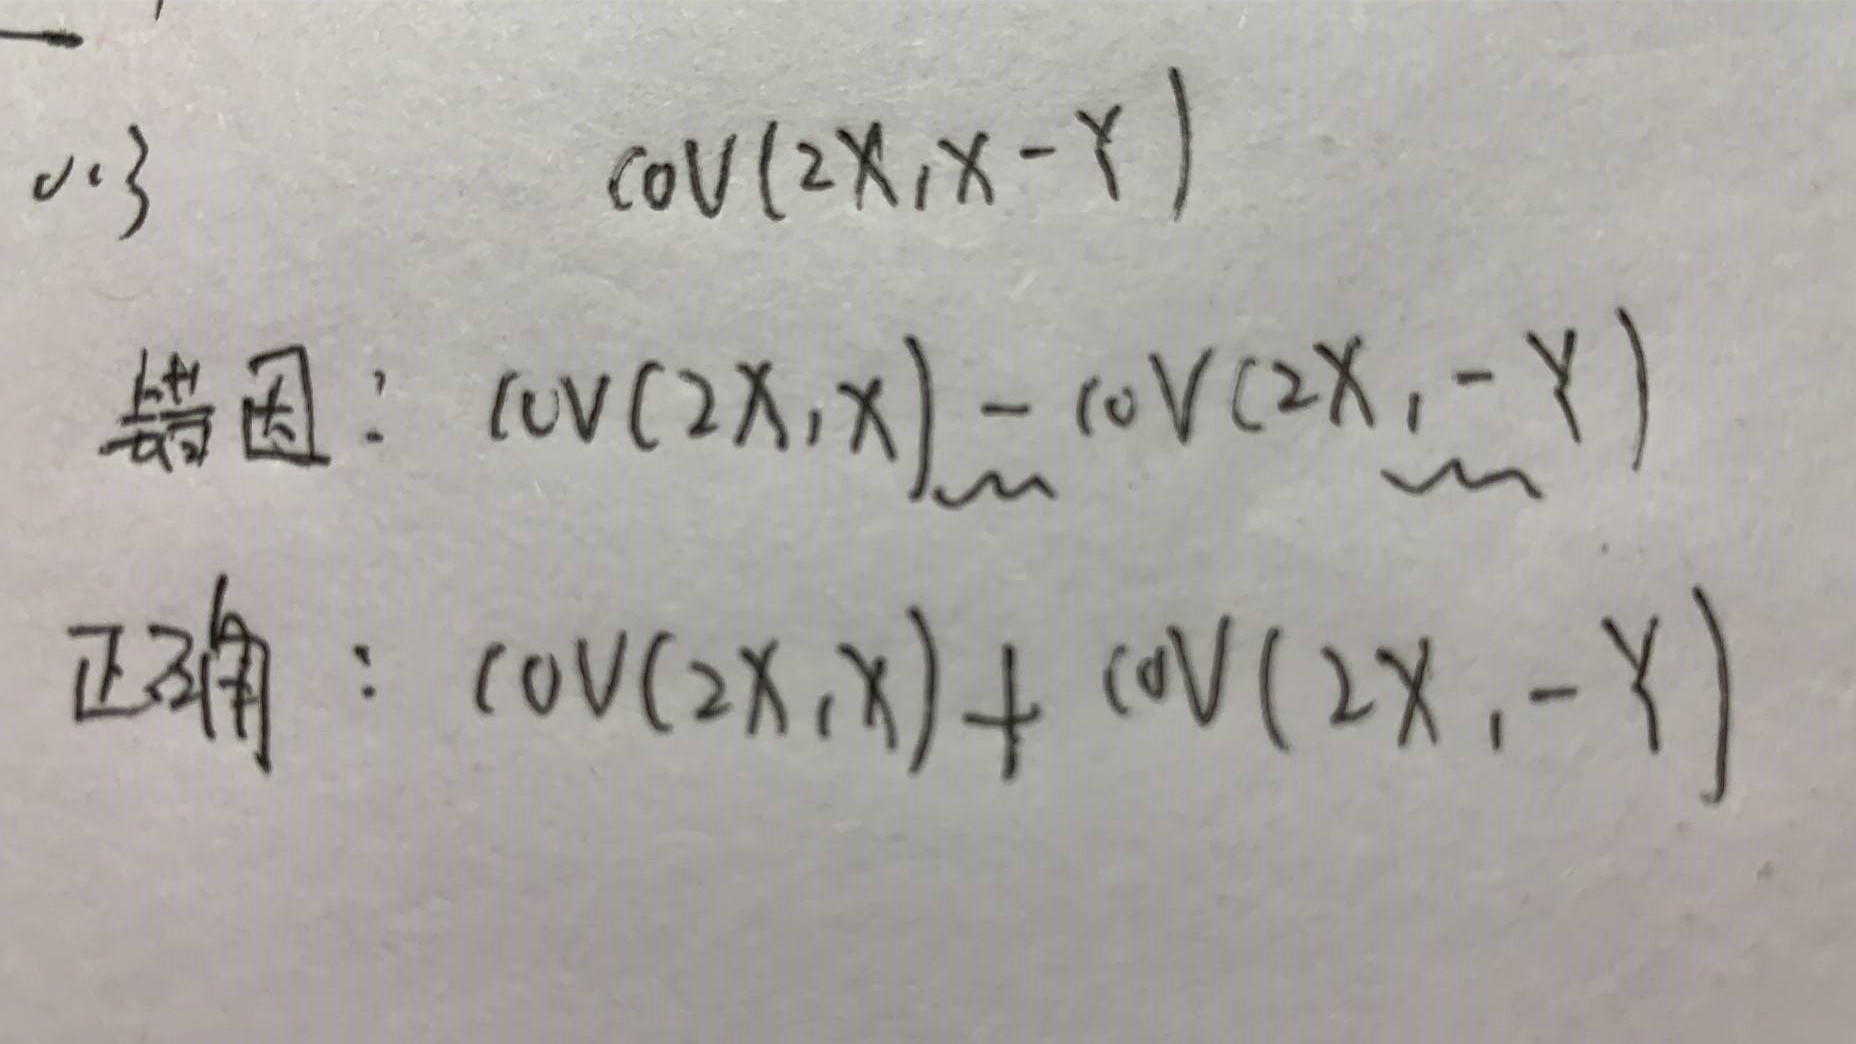 cov(2X,X-Y)
错因：cov(2X,X)-cov(2X,-Y)
正确：cov(2X,X)+cov(2X,-Y)